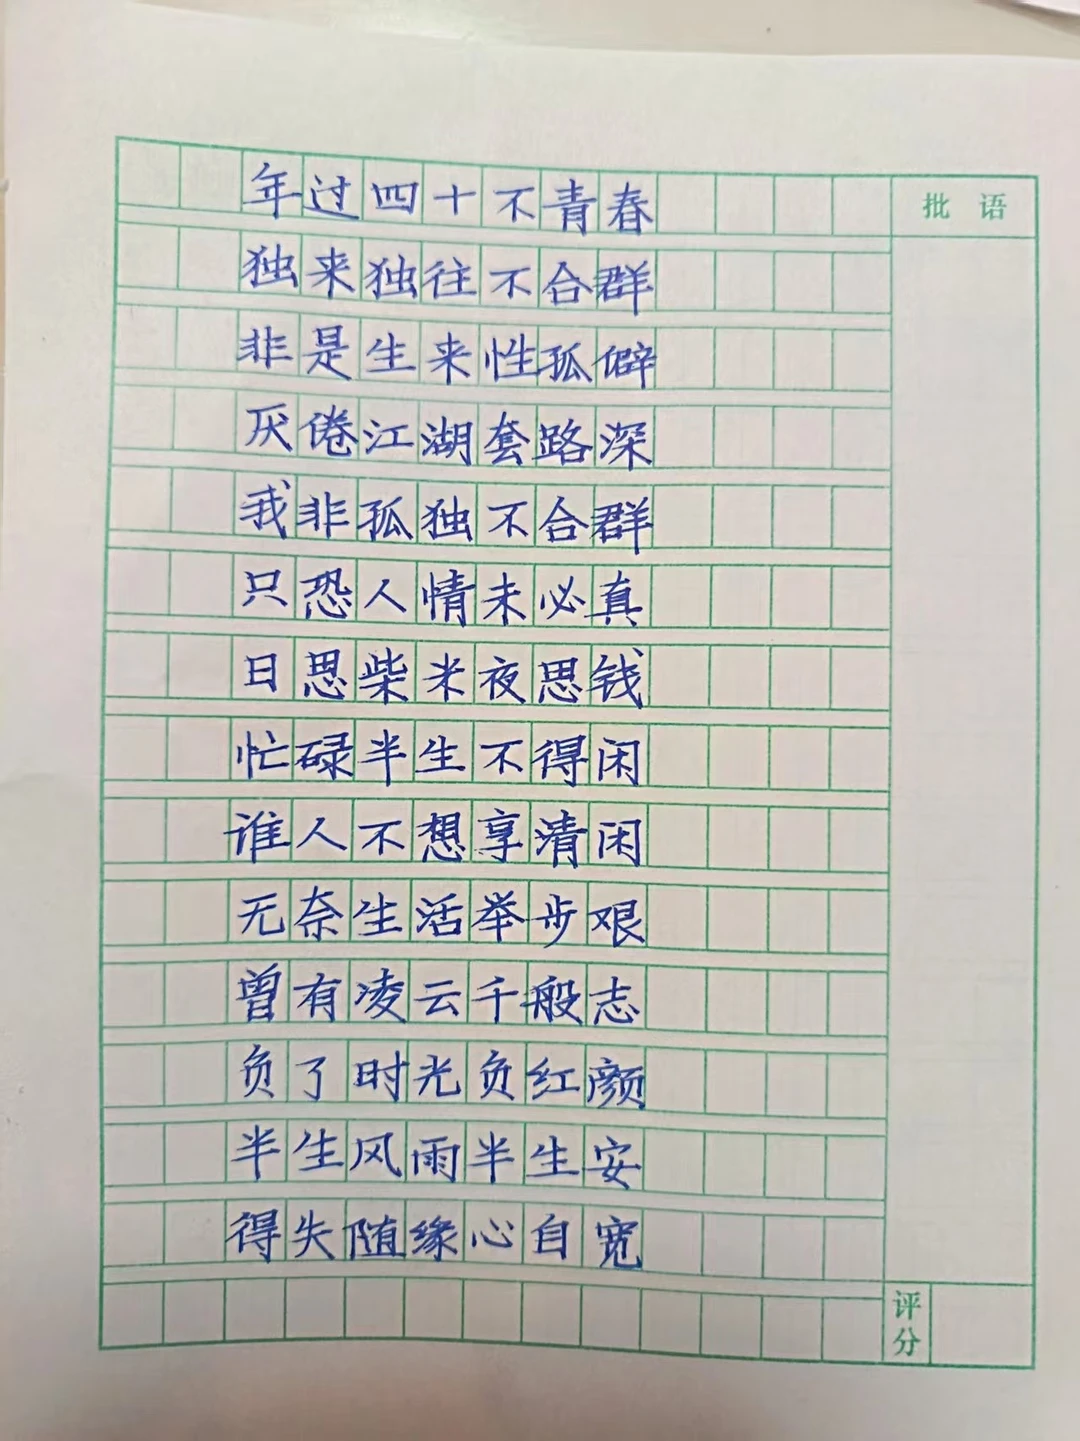 年过四十不青春
批语
独来独往不合群
非是生来性孤僻
厌倦江湖套路深
我非孤独不合群
只恐人情未必真
日思柴米夜思钱
忙碌半生不得闲
谁人不想享清闲
无奈生活举步艰
曾有凌云千般志
负了时光负红颜
半生风雨半生安
得失随缘心自宽
评分